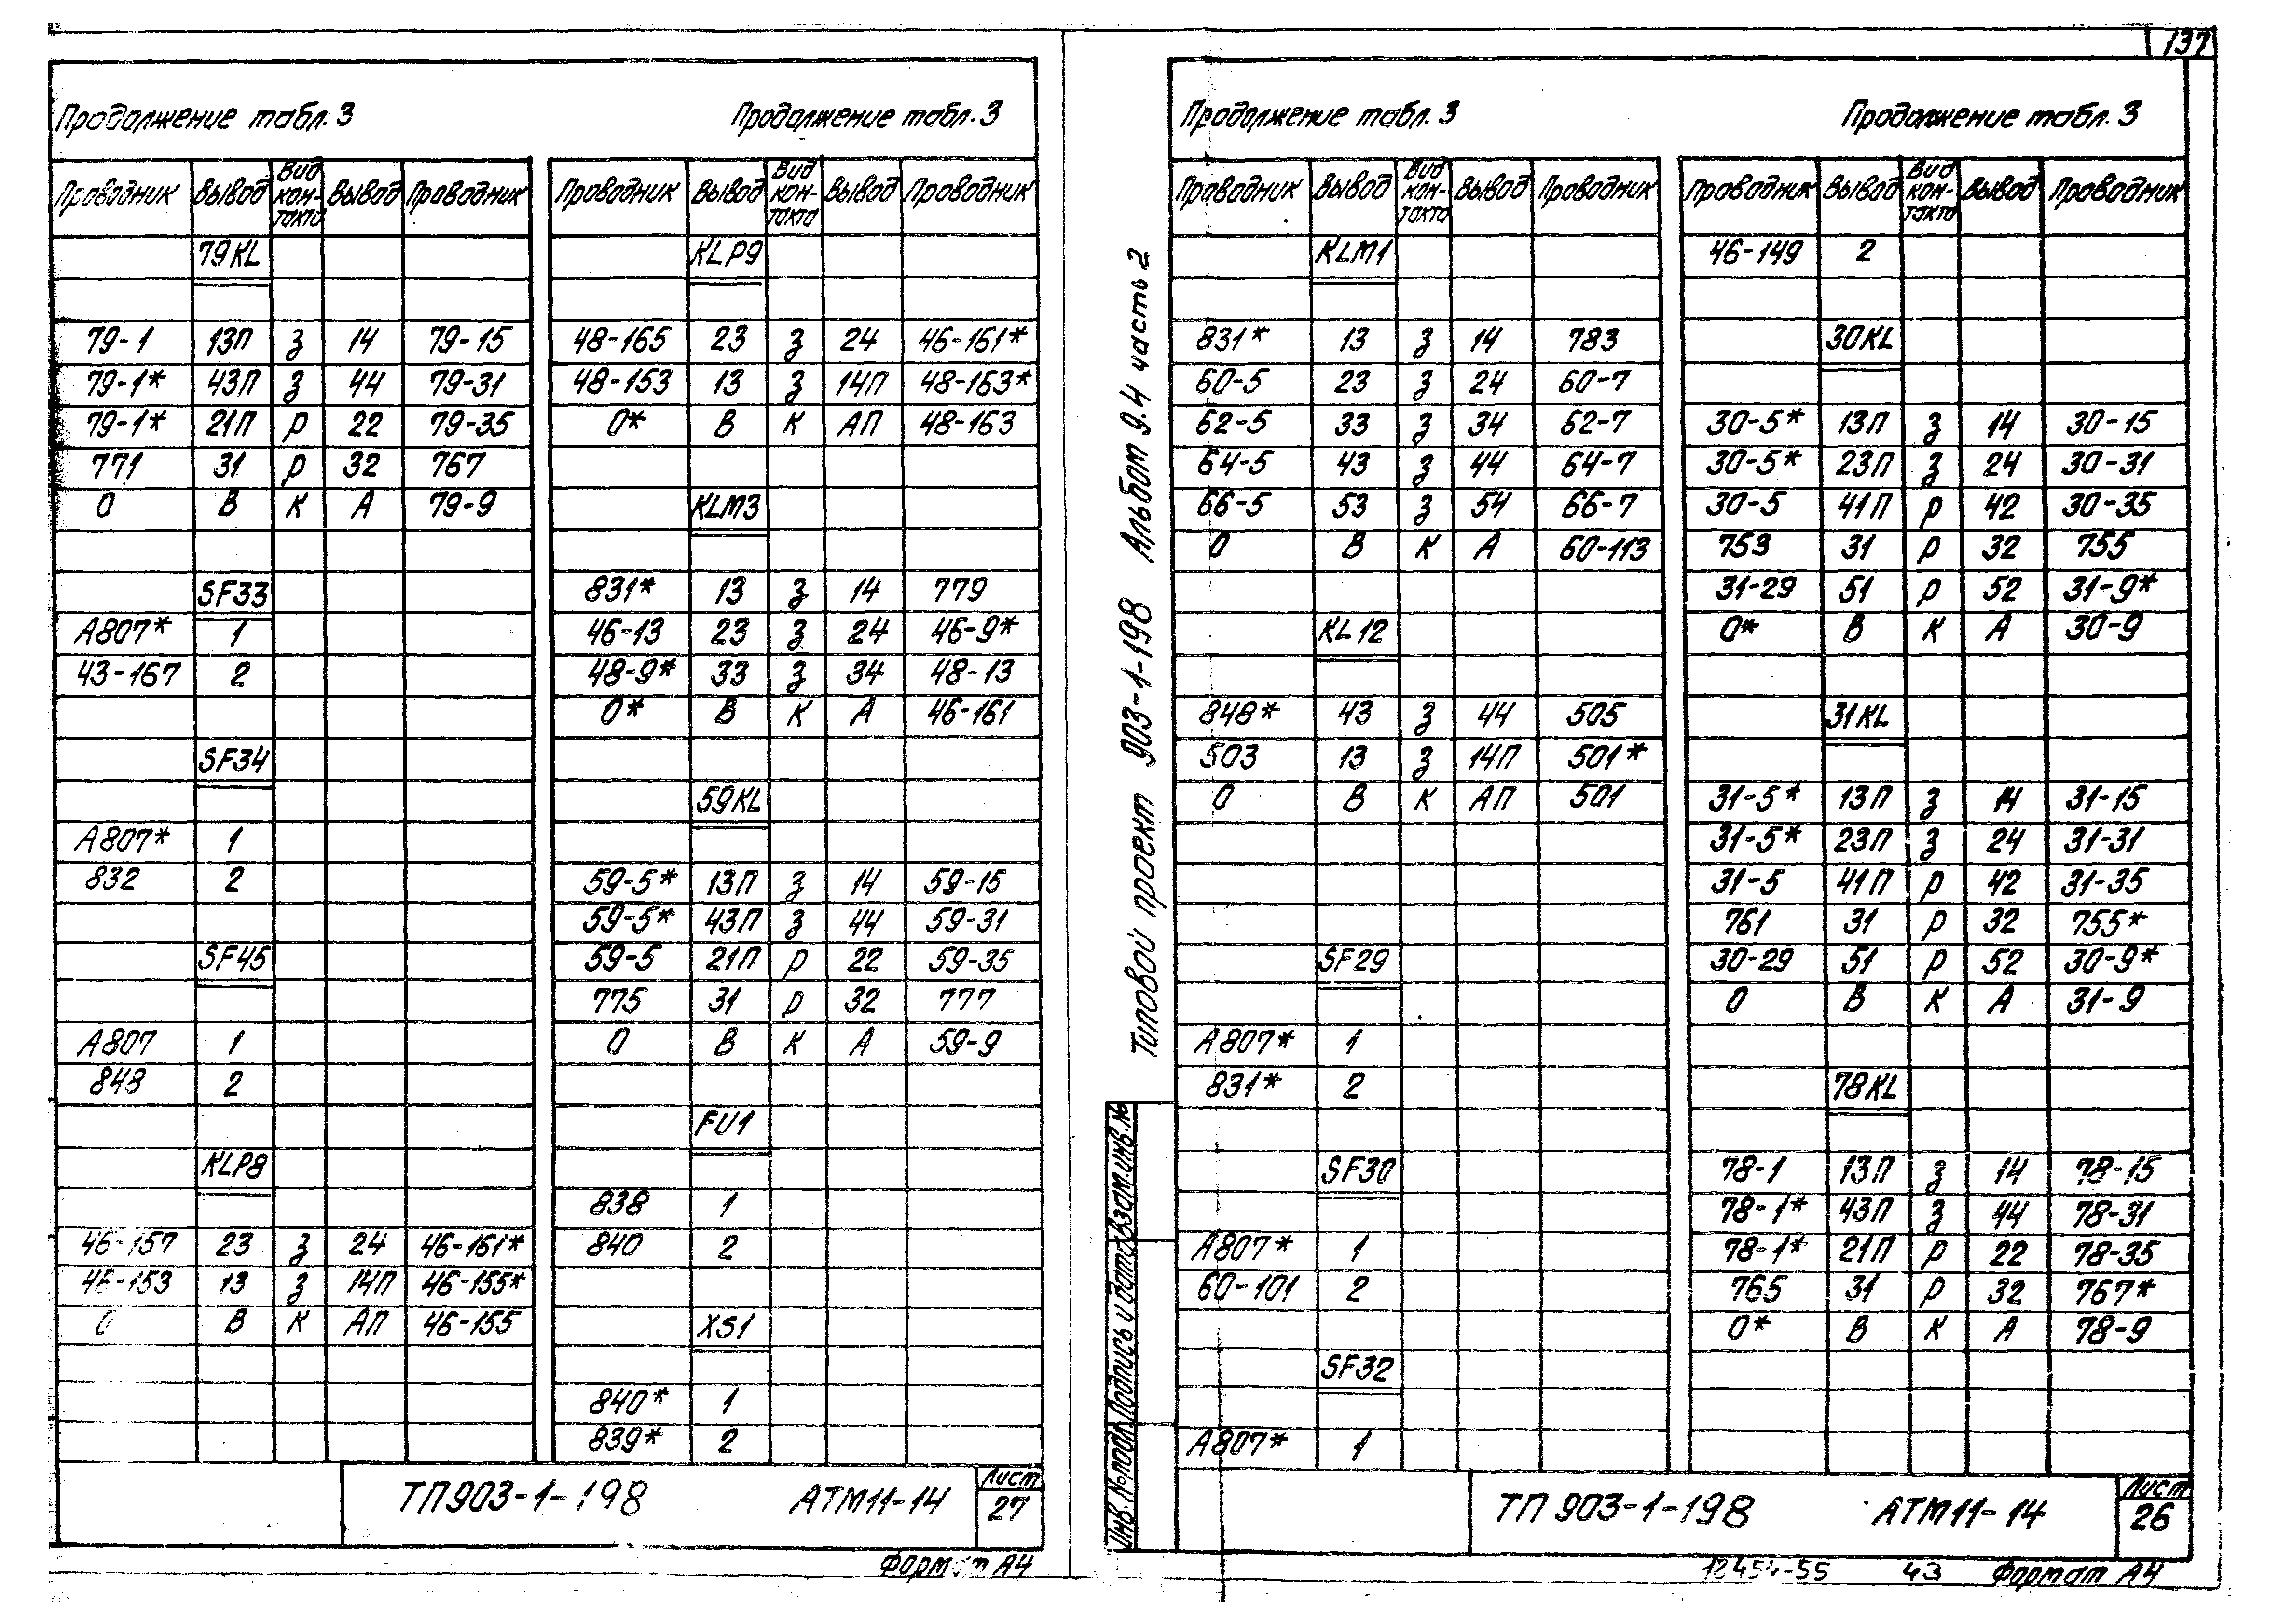 137
Продолжение табл. 3 Продолжение табл. 3
Проводник Вывод Вид контакта Вывод Проводник
79KL
79-1 13П З 14 79-15
79-1* 43П З 44 79-31
79-1* 21П Р 22 79-35
771 31 Р 32 767
0 В К А 79-9
SF33
А807* 1
43-167 2
SF34
А807* 1
832 2
SF45
А807 1
848 2
KLP8
46-157 23 З 24 46-161*
46-153 13 З 14П 46-155*
0 В К АП 46-155
Проводник Вывод Вид контакта Вывод Проводник
KLP9
48-165 23 З 24 46-161*
48-153 13 З 14П 48-163*
0* В К АП 48-163
KLM3
831* 13 З 14 779
46-13 23 З 24 46-9*
48-9* 33 З 34 48-13
0* В К А 46-161
59KL
59-5* 13П З 14 59-15
59-5* 43П З 44 59-31
59-5 21П Р 22 59-35
775 31 Р 32 777
0 В К А 59-9
FU1
838 1
840 2
XS1
840* 1
839* 2
ТП903-1-198 АТМ11-14 Лист 27
Формат А4
Типовой проект 903-1-198 Альбом 9.4 часть 2
Инв. № подл. Подпись и дата Взам. инв. №
Продолжение табл. 3 Продолжение табл. 3
Проводник Вывод Вид контакта Вывод Проводник
KLM1
831* 13 З 14 783
60-5 23 З 24 60-7
62-5 33 З 34 62-7
64-5 43 З 44 64-7
66-5 53 З 54 66-7
0 В К А 60-113
KL12
848* 43 З 44 505
503 13 З 14П 501*
0 В К АП 501
SF29
А807* 1
831* 2
SF30
А807* 1
60-101 2
SF32
А807* 1
Проводник Вывод Вид контакта Вывод Проводник
46-149 2
30KL
30-5* 13П З 14 30-15
30-5* 23П З 24 30-31
30-5 41П Р 42 30-35
753 31 Р 32 755
31-29 51 Р 52 31-9*
0* В К А 30-9
31KL
31-5* 13П З 14 31-15
31-5* 23П З 24 31-31
31-5 41П Р 42 31-35
761 31 Р 32 755*
30-29 51 Р 52 30-9*
0 В К А 31-9
78KL
78-1 13П З 14 78-15
78-1* 43П З 44 78-31
78-1* 21П Р 22 78-35
765 31 Р 32 767*
0* В К А 78-9
ТП 903-1-198 АТМ11-14 Лист 26
12454-55 43 Формат А4